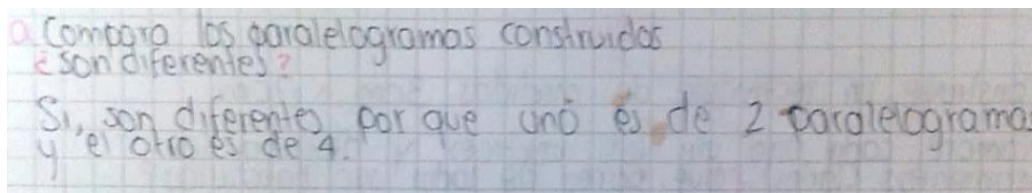 a. Compara los paralelogramos construidos
¿son diferentes?
Si, son diferentes por que uno es de 2 paralelograma
y el otro es de 4.